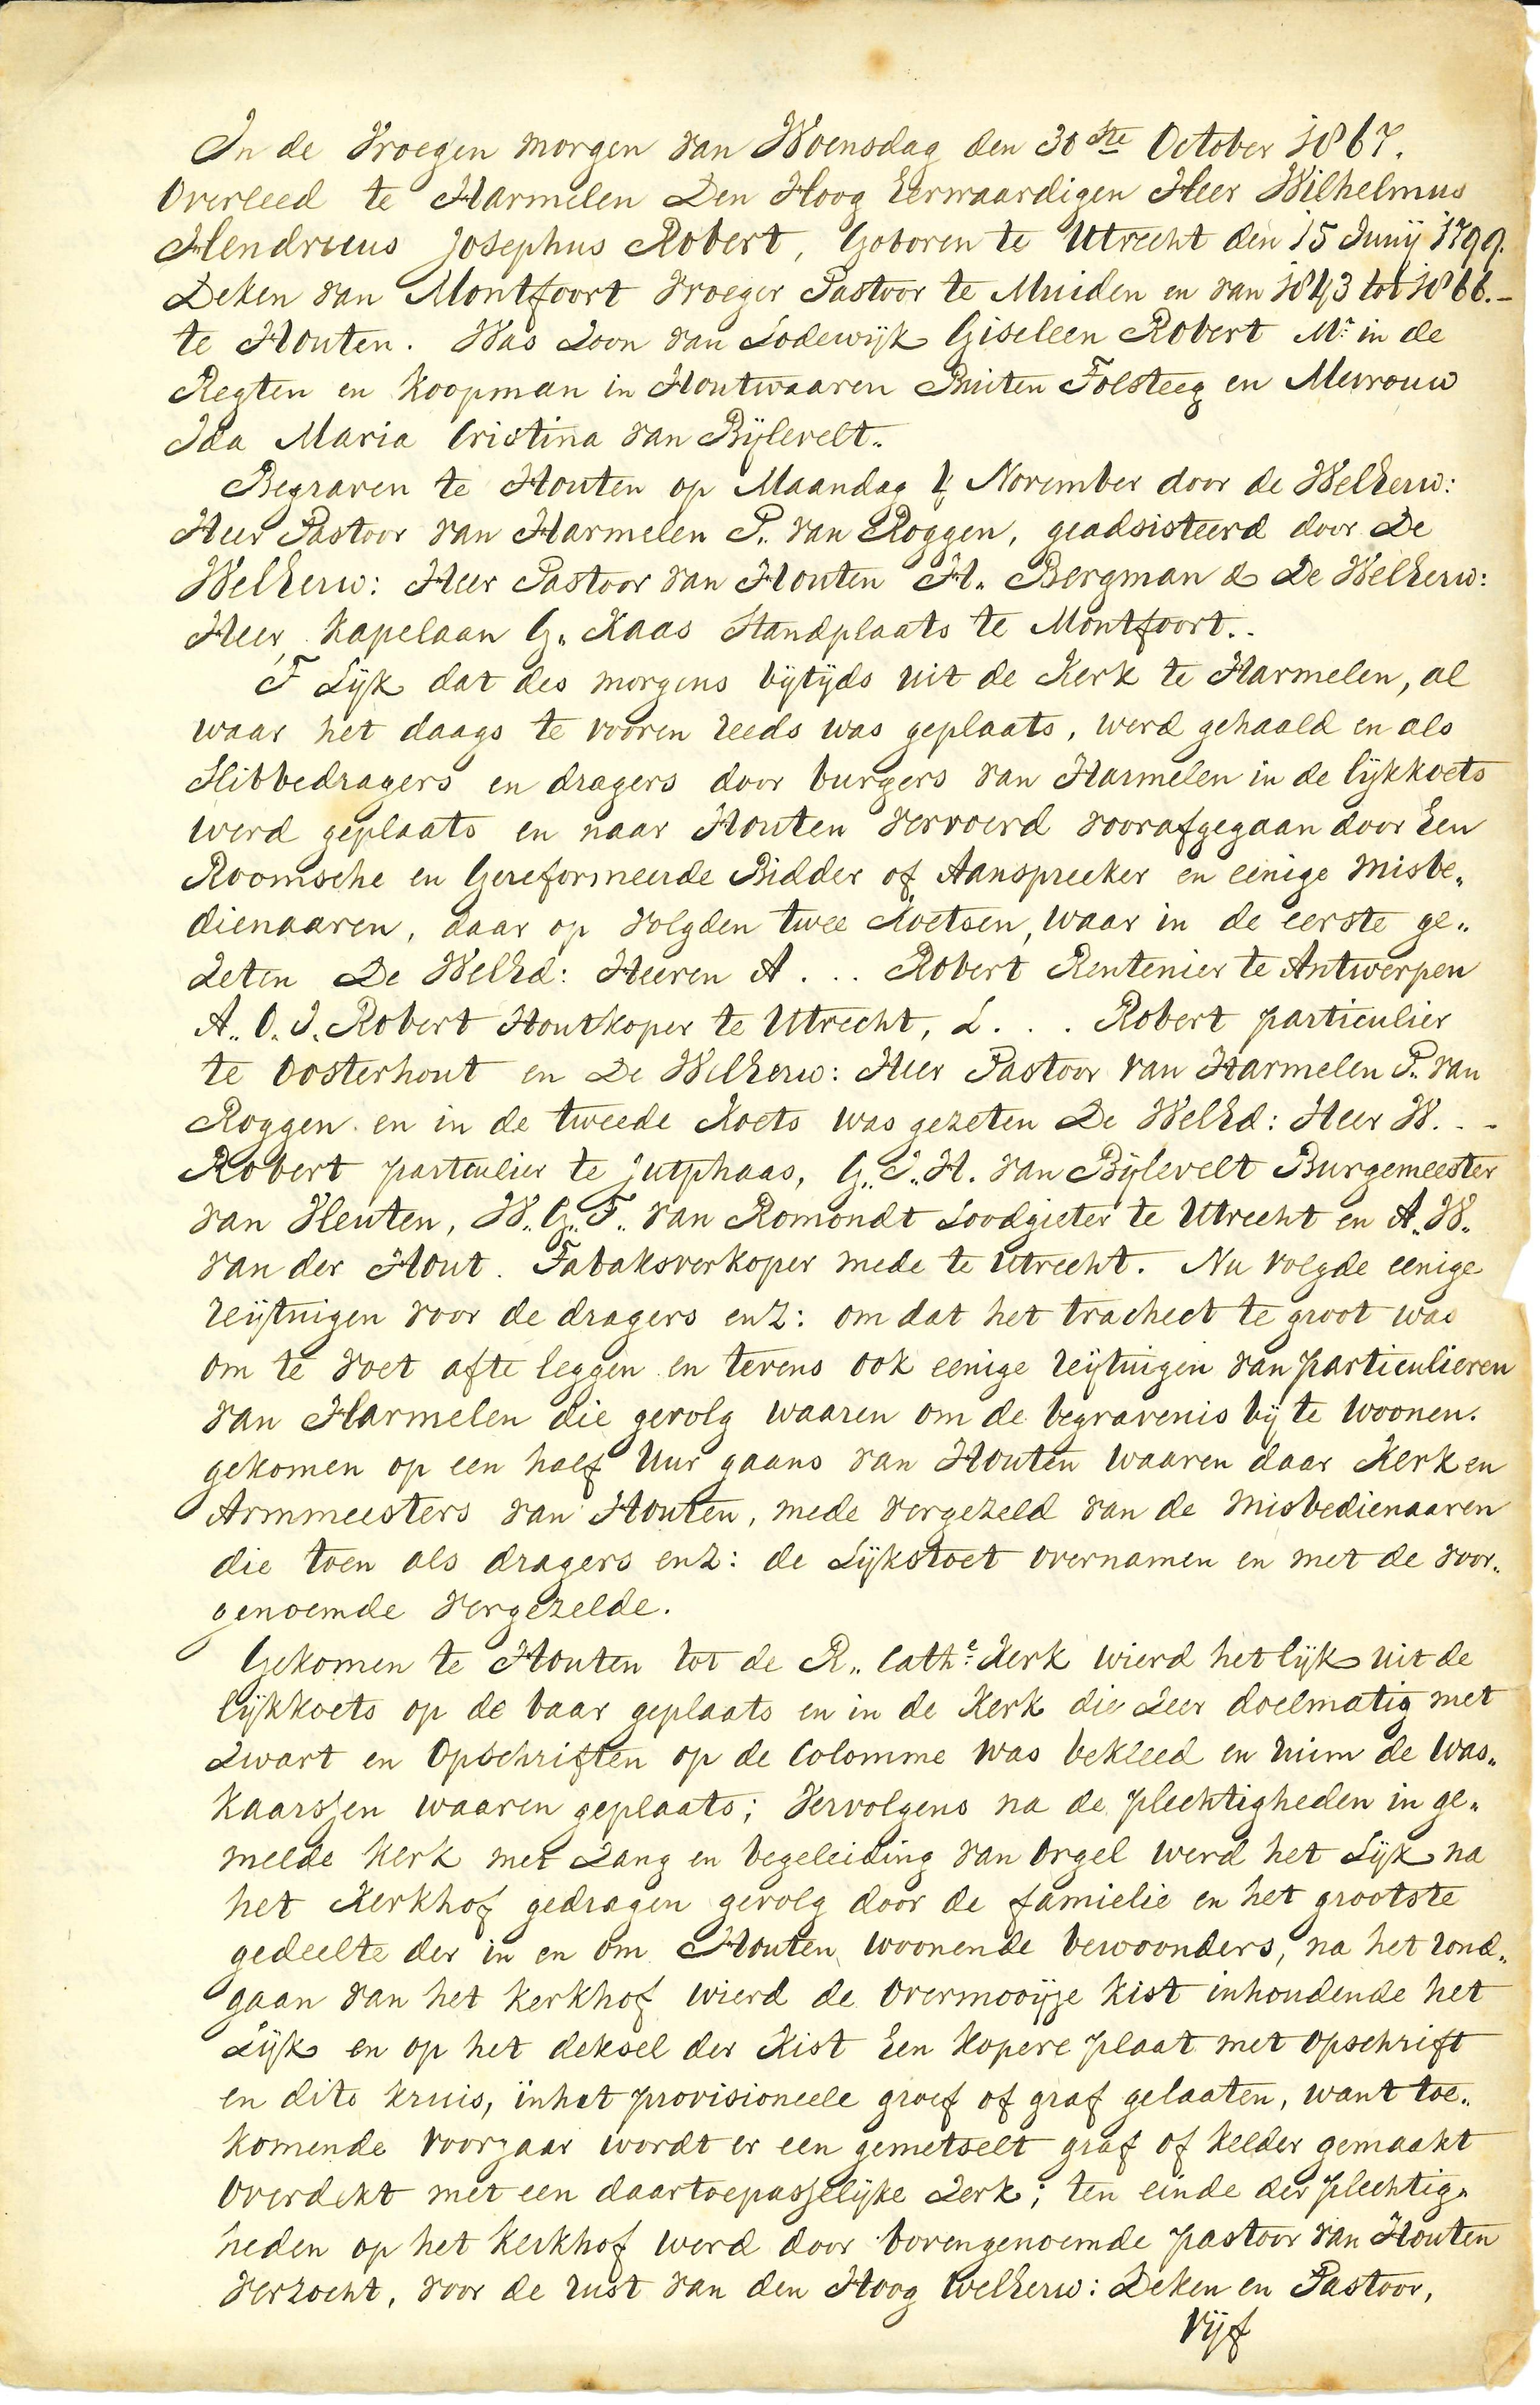 In de Vroegen morgen van Woensdag den 30ste October 1867.
Overleed te Harmelen Den Hoog Eerwaardigen Heer Wilhelmus
Hendricus Josephus Robert, Geboren te Utrecht den 15 Junij 1799.
Deken van Montfoort vroeger Pastoor te Muiden en van 1843 tot 1866.-
te Houten. Was Zoon van Lodewijk Giseleen Robert Mr. in de
Regten en Koopman in Houtwaaren Buiten Tolsteeg en Mevrouw
Ida Maria Cristina van Bijlevelt.
Begraven te Houten op Maandag 4 November door de WelEerw:
Heer Pastoor van Harmelen P. van Roggen, geadsisteerd door De
WelEerw: Heer Pastoor van Houten H. Bergman & De WelEerw:
Heer Kapelaan G. Kaas Standplaats te Montfoort..
T Lijk dat des morgens bijtijds uit de Kerk te Harmelen, al
waar het daags te vooren reeds was geplaats, werd gehaald en als
Slibbedragers en dragers door burgers van Harmelen in de lijkkoets
werd geplaats en naar Houten vervoerd voorafgegaan door Een
Roomsche en Gereformeerde Bidder of Aanspreeker en einige Misbe„
dienaaren, daar op volgden twee Koetsen, waar in de eerste ge„
zeten De WelEd: Heeren A . . . Robert Rentenier te Antwerpen
A. C. J. Robert Houtkoper te Utrecht, L . . . Robert particulier
te Oosterhout en De WelEerw: Heer Pastoor van Harmelen P. van
Roggen en in de tweede Koets was gezeten De WelEd: Heer W. - -
Robert particulier te Jutphaas, G. J. H. van Bijlevelt Burgemeester
van Heuten, W. G. F. van Romondt Loodgieter te Utrecht en A. W.
van der Hout. Tabaksverkoper mede te Utrecht. Nu volgde eenige
reijtuigen voor de dragers enz: om dat het tracheet te groot was
om te voet afte leggen en tevens ook eenige reijtuigen van particulieren
van Harmelen die gevolg waaren om de begravenis bij te woonen.
gekomen op een half Uur gaans van Houten waaren daar Kerk en
Armmeesters van Houten, mede vergezeld van de Misbedienaaren
die toen als dragers enz: de Lijkstoet overnamen en met de voor„
genoemde vergezelde.
Gekomen te Houten tot de R. Cath: Kerk wierd het lijk uit de
lijkkoets op de baar geplaats en in de Kerk die Zeer doelmatig met
Zwart en Opschriften op de Colomme was bekleed en ruim de was„
kaarssen waaren geplaats; Vervolgens na de plechtigheden in ge„
melde Kerk met Zang en begeleiding van Orgel werd het Lijk na
het Kerkhof gedragen gevolg door de famielie en het grootste
gedeelte der in en om Houten woonende bewoonders, na het rond„
gaan van het kerkhof wierd de Overmooije Kist inhoudende het
Lijk en op het deksel der Kist Een Kopere plaat met opschrift
en dito kruis, inhet provisioneele groef of graf gelaaten, want toe„
komende voorjaar wordt er een gemetselt graf of kelder gemaakt
Overdekt met een daartoepasselijke Zerk; ten einde der plechtig„
heden op het kerkhof werd door bovengenoemde pastoor van Houten
verzocht, voor de rust van den Hoog WelEerw: Deken en Pastoor,
Vijf